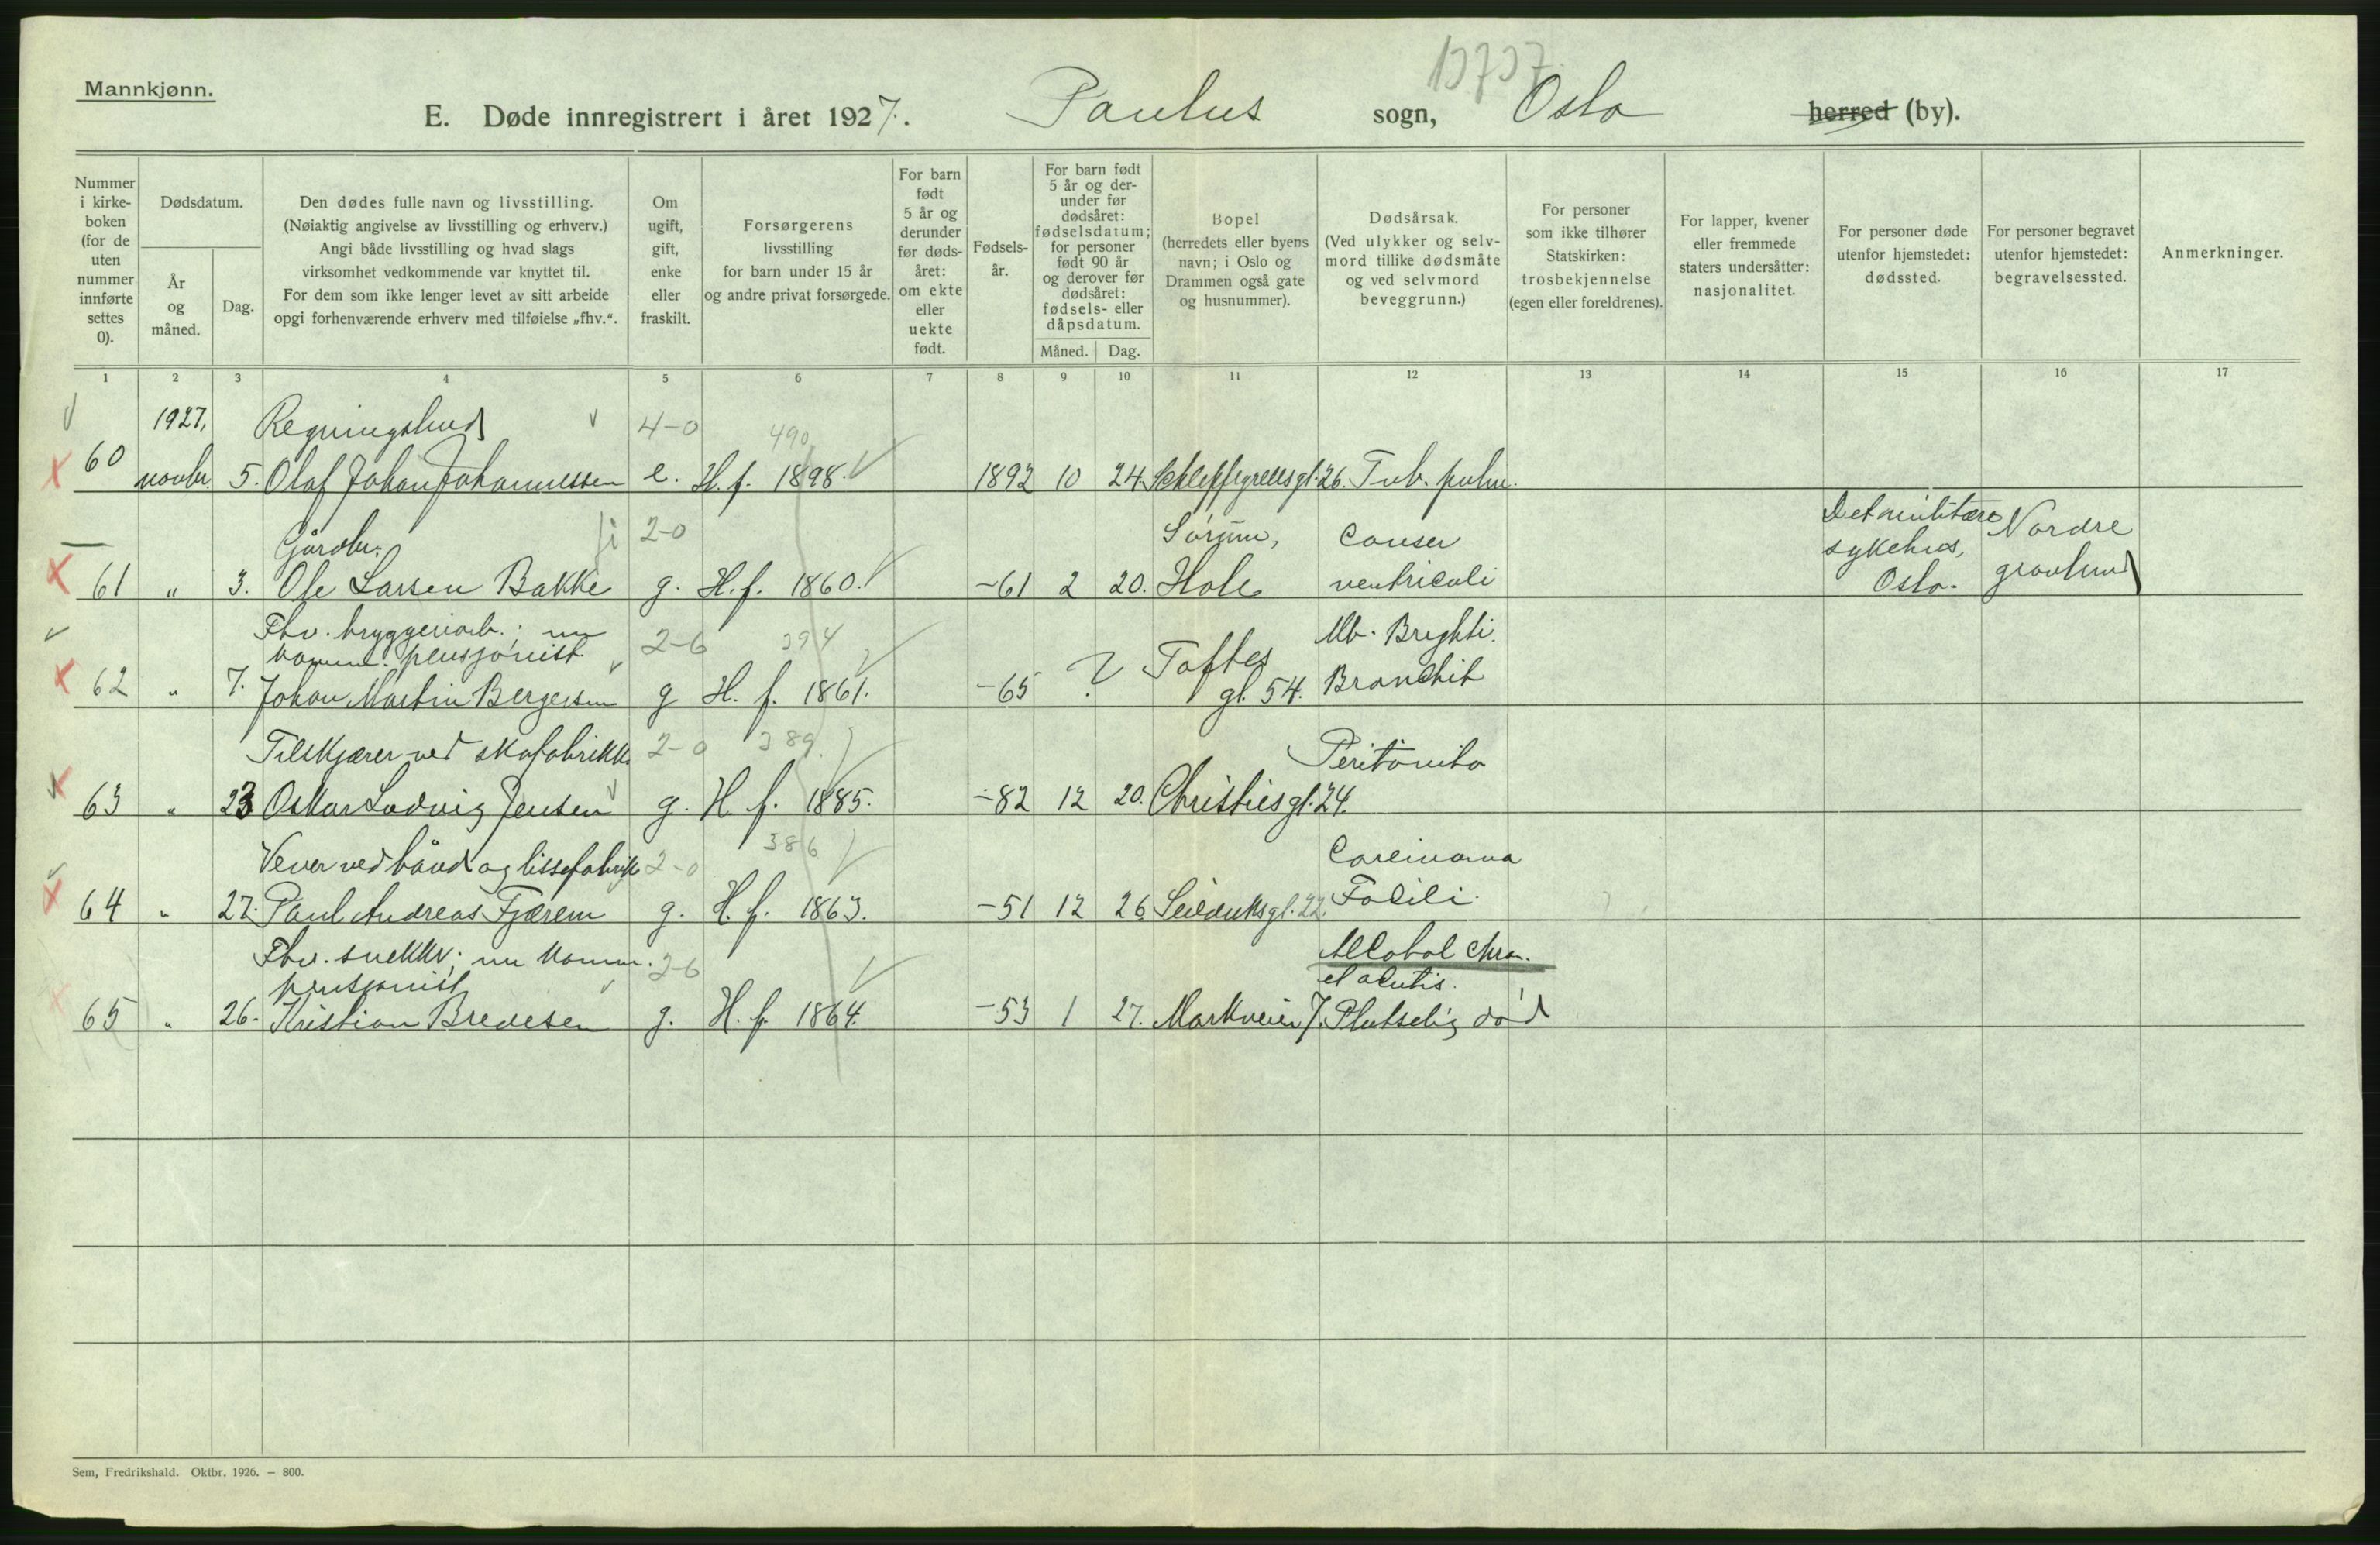 13737
Mannkjønn.
E. Døde innregistrert i året 1927. Paulus sogn, Oslo herred (by).
Nummer i kirke- boken (for de uten nummer innførte settes 0).
Dødsdatum.
År og måned.
Dag.
Den dødes fulle navn og livsstilling.
(Nøiaktig angivelse av livsstilling og erhverv.)
Angi både livsstilling og hvad slags
virksomhet vedkommende var knyttet til.
For dem som ikke lenger levet av sitt arbeide
opgi forhenværende erhverv med tilføielse „fhv.“.
Om ugift, gift, enke eller fraskilt.
Forsørgerens livsstilling for barn under 15 år og andre privat forsørgede.
For barn født 5 år og derunder før døds- året: om ekte eller uekte født.
Fødsels- år.
For barn født 5 år og der- under før dødsåret: fødselsdatum; for personer født 90 år og derover før dødsåret: fødsels- eller dåpsdatum.
Måned. Dag.
Bopel (herredets eller byens navn; i Oslo og Drammen også gate og husnummer).
Dødsårsak. (Ved ulykker og selv- mord tillike dødsmåte og ved selvmord beveggrunn.)
For personer som ikke tilhører Statskirken: trosbekjennelse (egen eller foreldrenes).
For lapper, kvener eller fremmede staters undersåtter: nasjonalitet.
For personer døde utenfor hjemstedet: dødssted.
For personer begravet utenfor hjemstedet: begravelsessted.
Anmerkninger.
1 2 3 4 5 6 7 8 9 10 11 12 13 14 15 16 17
1927, Regningsbud 4-0 490
60 novbr. 5. Olaf Johan Johannessen e. H. f. 1898. 1892 10 24. Schleppegrellsgt. 26. Tub. pulm.
Gårdbr. 2-0 Sørum, Canser Det militære Nordre
sykehus,
61 " 3. Ole Larsen Bakke g. H. f. 1860. -61 2 20. Hole ventriculi Oslo. gravlund
Fhv. bryggeriarb.; nu 2-6 394 Mb. Brighti.
komm. pensjonist.
62 " 7. Johan Martin Bergersen g H. f. 1861. -65 ? Toftes gt. 54. Bronchit
Tilskjærer ved skofabrikk. 2-0 389. Peritonitt
63 " 23 Oskar Ludvig Jensen g. H. f. 1885. -82 12 20. Christiesgt. 24.
Vever ved bånd og lissefabrik 2-0 386 Carcinoma
64 " 27. Paul Andreas Fjærem g. H. f. 1863. -51 12 26. Seilduksgt. 22. Faciei.
Fhv. snekker; nu komm. 2-6 Alcohol chron.
pensjonist et acutis.
65 " 26. Kristian Bredesen g. H. f. 1864. -53 1 27. Markveien 7. Plutselig død
Sem, Fredrikshald. Oktbr. 1926. — 800.